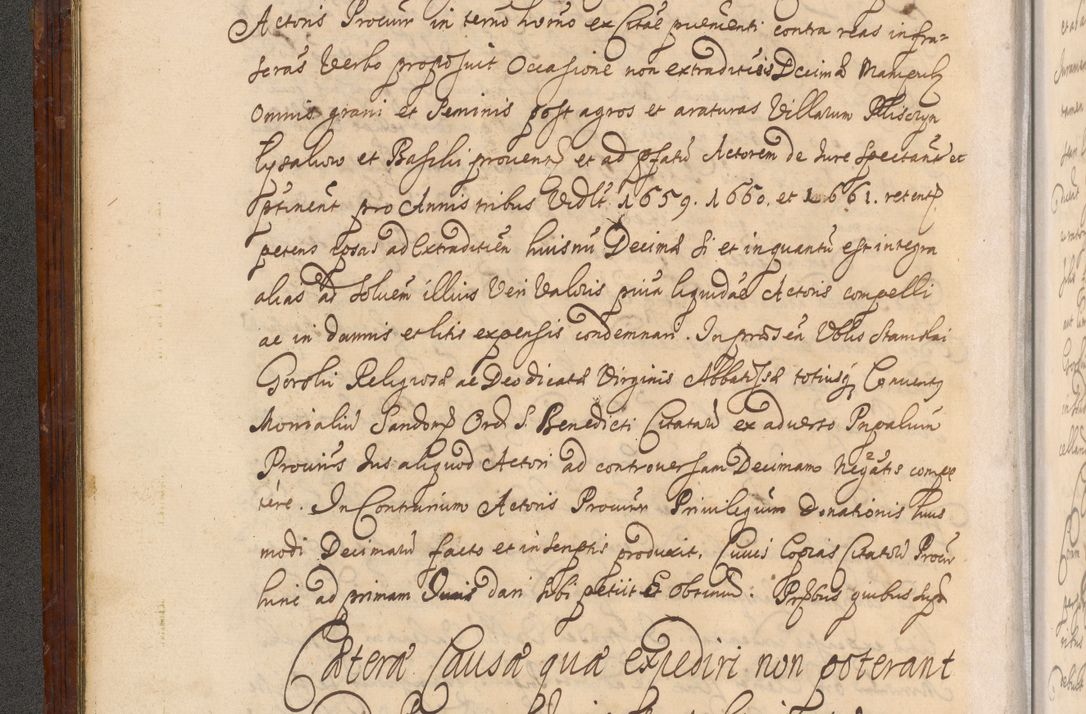 Actoris Procur in termo horno ex Citãe provenienti contra reas infra=
scras Verbo proposuit Occasione non extraditeis Decimæ Manipulis
Omnis grani et Seminis post agros et araturas Villarum
et Basilii provenn et ad pfatũ Actorem de Iure Spectanẽ et
ptinenẽ pro Annis tribus Vidlt 1659. 1660. et 1661. retent
petens easdas ad Extraditiẽn huismũ Decimæ Si et inquantũ est integra
alias ad Soluẽm illius Veri Valoris liquidãe Actoris compelli
ac in damnis et litis expensis condemnari. In prñs ea Nblis Stanislai
Gorskii Religiosæ ac Deodicatæ Virginis Abbatissæ totiusq Conventus
Monialiũ Sandomir Ord S. Benedicti Citatarũ ex adverso Prnpalium
Procur Ius aliquod Actori ad controversam Decimam negãtis compe
tere. In Contrarium Actoris Procur Privilegium Donationis huius
modi Decimarũ facto et in scriptis produxit, Cuius Copias Citatarũ Procur
hinc ad primam Iuris dari sibi petiit Et obtinuit. Prñbus quibus Supra
Cæteræ Causæ quæ expediri non poterant